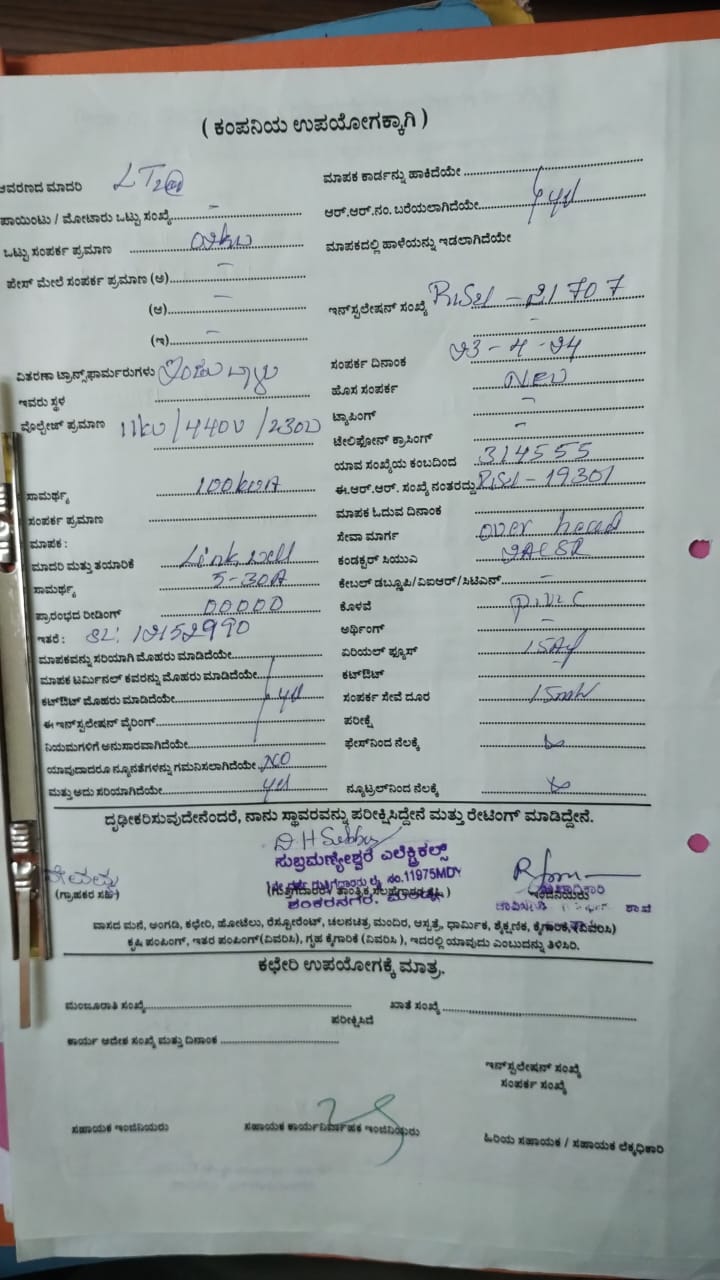 ( ಕಂಪನಿಯ ಉಪಯೋಗಕ್ಕಾಗಿ )
ಆವರಣದ ಮಾದರಿ LT2
ಮಾಪಕ ಕಾರ್ಡನ್ನು ಹಾಕಿದೆಯೇ
ಪಾಯಿಂಟು / ಮೋಟಾರು ಒಟ್ಟು ಸಂಖ್ಯೆ –
ಆರ್.ಆರ್.ನಂ. ಬರೆಯಲಾಗಿದೆಯೇ yes
ಒಟ್ಟು ಸಂಪರ್ಕ ಪ್ರಮಾಣ
ಮಾಪಕದಲ್ಲಿ ಹಾಳೆಯನ್ನು ಇಡಲಾಗಿದೆಯೇ
ಫೇಸ್ ಮೇಲೆ ಸಂಪರ್ಕ ಪ್ರಮಾಣ (ಅ) –
(ಆ) –
ಇನ್‌ಸ್ಟಲೇಷನ್ ಸಂಖ್ಯೆ 21707
(ಇ) –
–
ವಿತರಣಾ ಟ್ರಾನ್ಸ್‌ಫಾರ್ಮರುಗಳು
ಸಂಪರ್ಕ ದಿನಾಂಕ 23-4-24
ಇವರು ಸ್ಥಳ
ಹೊಸ ಸಂಪರ್ಕ NEW
ವೊಲ್ಟೇಜ್ ಪ್ರಮಾಣ 11kv/440v/230v
ಟ್ಯಾಪಿಂಗ್ –
ಟೆಲಿಫೋನ್ ಕ್ರಾಸಿಂಗ್ –
ಯಾವ ಸಂಖ್ಯೆಯ ಕಂಬದಿಂದ 314555
ಸಾಮರ್ಥ್ಯ 100kva
ಈ.ಆರ್.ಆರ್. ಸಂಖ್ಯೆ ನಂತರದ್ದು 19301
ಸಂಪರ್ಕ ಪ್ರಮಾಣ
ಮಾಪಕ ಓದುವ ದಿನಾಂಕ
ಮಾಪಕ :
ಸೇವಾ ಮಾರ್ಗ over head
ಮಾದರಿ ಮತ್ತು ತಯಾರಿಕೆ Linkwell
ಕಂಡಕ್ಟರ್ ಸಿಯುಎ
ಸಾಮರ್ಥ್ಯ 5-30A
ಕೇಬಲ್ ಡಬ್ಲ್ಯೂಪಿ/ಎಐಆರ್/ಸಿಟಿಎನ್ –
ಪ್ರಾರಂಭದ ರೀಡಿಂಗ್ 00000
ಕೊಳವೆ P.V.C
ಇತರೆ : SL: 12152990
ಅರ್ಥಿಂಗ್ –
ಮಾಪಕವನ್ನು ಸರಿಯಾಗಿ ಮೊಹರು ಮಾಡಿದೆಯೇ
ಏರಿಯಲ್ ಫ್ಯೂಸ್
ಮಾಪಕ ಟರ್ಮಿನಲ್ ಕವರನ್ನು ಮೊಹರು ಮಾಡಿದೆಯೇ
ಕಟ್‌ಔಟ್
ಕಟ್‌ಔಟ್ ಮೊಹರು ಮಾಡಿದೆಯೇ yes
ಸಂಪರ್ಕ ಸೇವೆ ದೂರ
ಈ ಇನ್‌ಸ್ಟಲೇಷನ್ ವೈರಿಂಗ್
ಪರೀಕ್ಷೆ
ನಿಯಮಗಳಿಗೆ ಅನುಸಾರವಾಗಿದೆಯೇ
ಫೇಸ್‌ನಿಂದ ನೆಲಕ್ಕೆ
ಯಾವುದಾದರೂ ನ್ಯೂನತೆಗಳನ್ನು ಗಮನಿಸಲಾಗಿದೆಯೇ NO
ಮತ್ತು ಅದು ಸರಿಯಾಗಿದೆಯೇ yes
ನ್ಯೂಟ್ರಲ್‌ನಿಂದ ನೆಲಕ್ಕೆ
ದೃಢೀಕರಿಸುವುದೇನೆಂದರೆ, ನಾನು ಸ್ಥಾವರವನ್ನು ಪರೀಕ್ಷಿಸಿದ್ದೇನೆ ಮತ್ತು ರೇಟಿಂಗ್ ಮಾಡಿದ್ದೇನೆ.
ಸುಬ್ರಮಣ್ಯೇಶ್ವರ ಎಲೆಕ್ಟ್ರಿಕಲ್ಸ್
No.11975MDY
(ಗ್ರಾಹಕರ ಸಹಿ)
ಶಂಕರನಗರ,
ಇಂಜಿನಿಯರು
ವಾಸದ ಮನೆ, ಅಂಗಡಿ, ಕಛೇರಿ, ಹೋಟೆಲು, ರೆಸ್ಟೋರೆಂಟ್, ಚಲನಚಿತ್ರ ಮಂದಿರ, ಆಸ್ಪತ್ರೆ, ಧಾರ್ಮಿಕ, ಶೈಕ್ಷಣಿಕ, ಕೈಗಾರಿಕೆ, (ವಿವರಿಸಿ)
ಕೃಷಿ ಪಂಪಿಂಗ್, ಇತರ ಪಂಪಿಂಗ್(ವಿವರಿಸಿ), ಗೃಹ ಕೈಗಾರಿಕೆ (ವಿವರಿಸಿ ), ಇದರಲ್ಲಿ ಯಾವುದು ಎಂಬುದನ್ನು ತಿಳಿಸಿರಿ.
ಕಛೇರಿ ಉಪಯೋಗಕ್ಕೆ ಮಾತ್ರ.
ಮಂಜೂರಾತಿ ಸಂಖ್ಯೆ
ಖಾತೆ ಸಂಖ್ಯೆ
ಪರೀಕ್ಷಿಸಿದೆ
ಕಾರ್ಯ ಆದೇಶ ಸಂಖ್ಯೆ ಮತ್ತು ದಿನಾಂಕ
ಇನ್‌ಸ್ಟಲೇಷನ್ ಸಂಖ್ಯೆ
ಸಂಪರ್ಕ ಸಂಖ್ಯೆ
ಸಹಾಯಕ ಇಂಜಿನಿಯರು
ಸಹಾಯಕ ಕಾರ್ಯನಿರ್ವಾಹಕ ಇಂಜಿನಿಯರು
ಹಿರಿಯ ಸಹಾಯಕ / ಸಹಾಯಕ ಲೆಕ್ಕಧಿಕಾರಿ